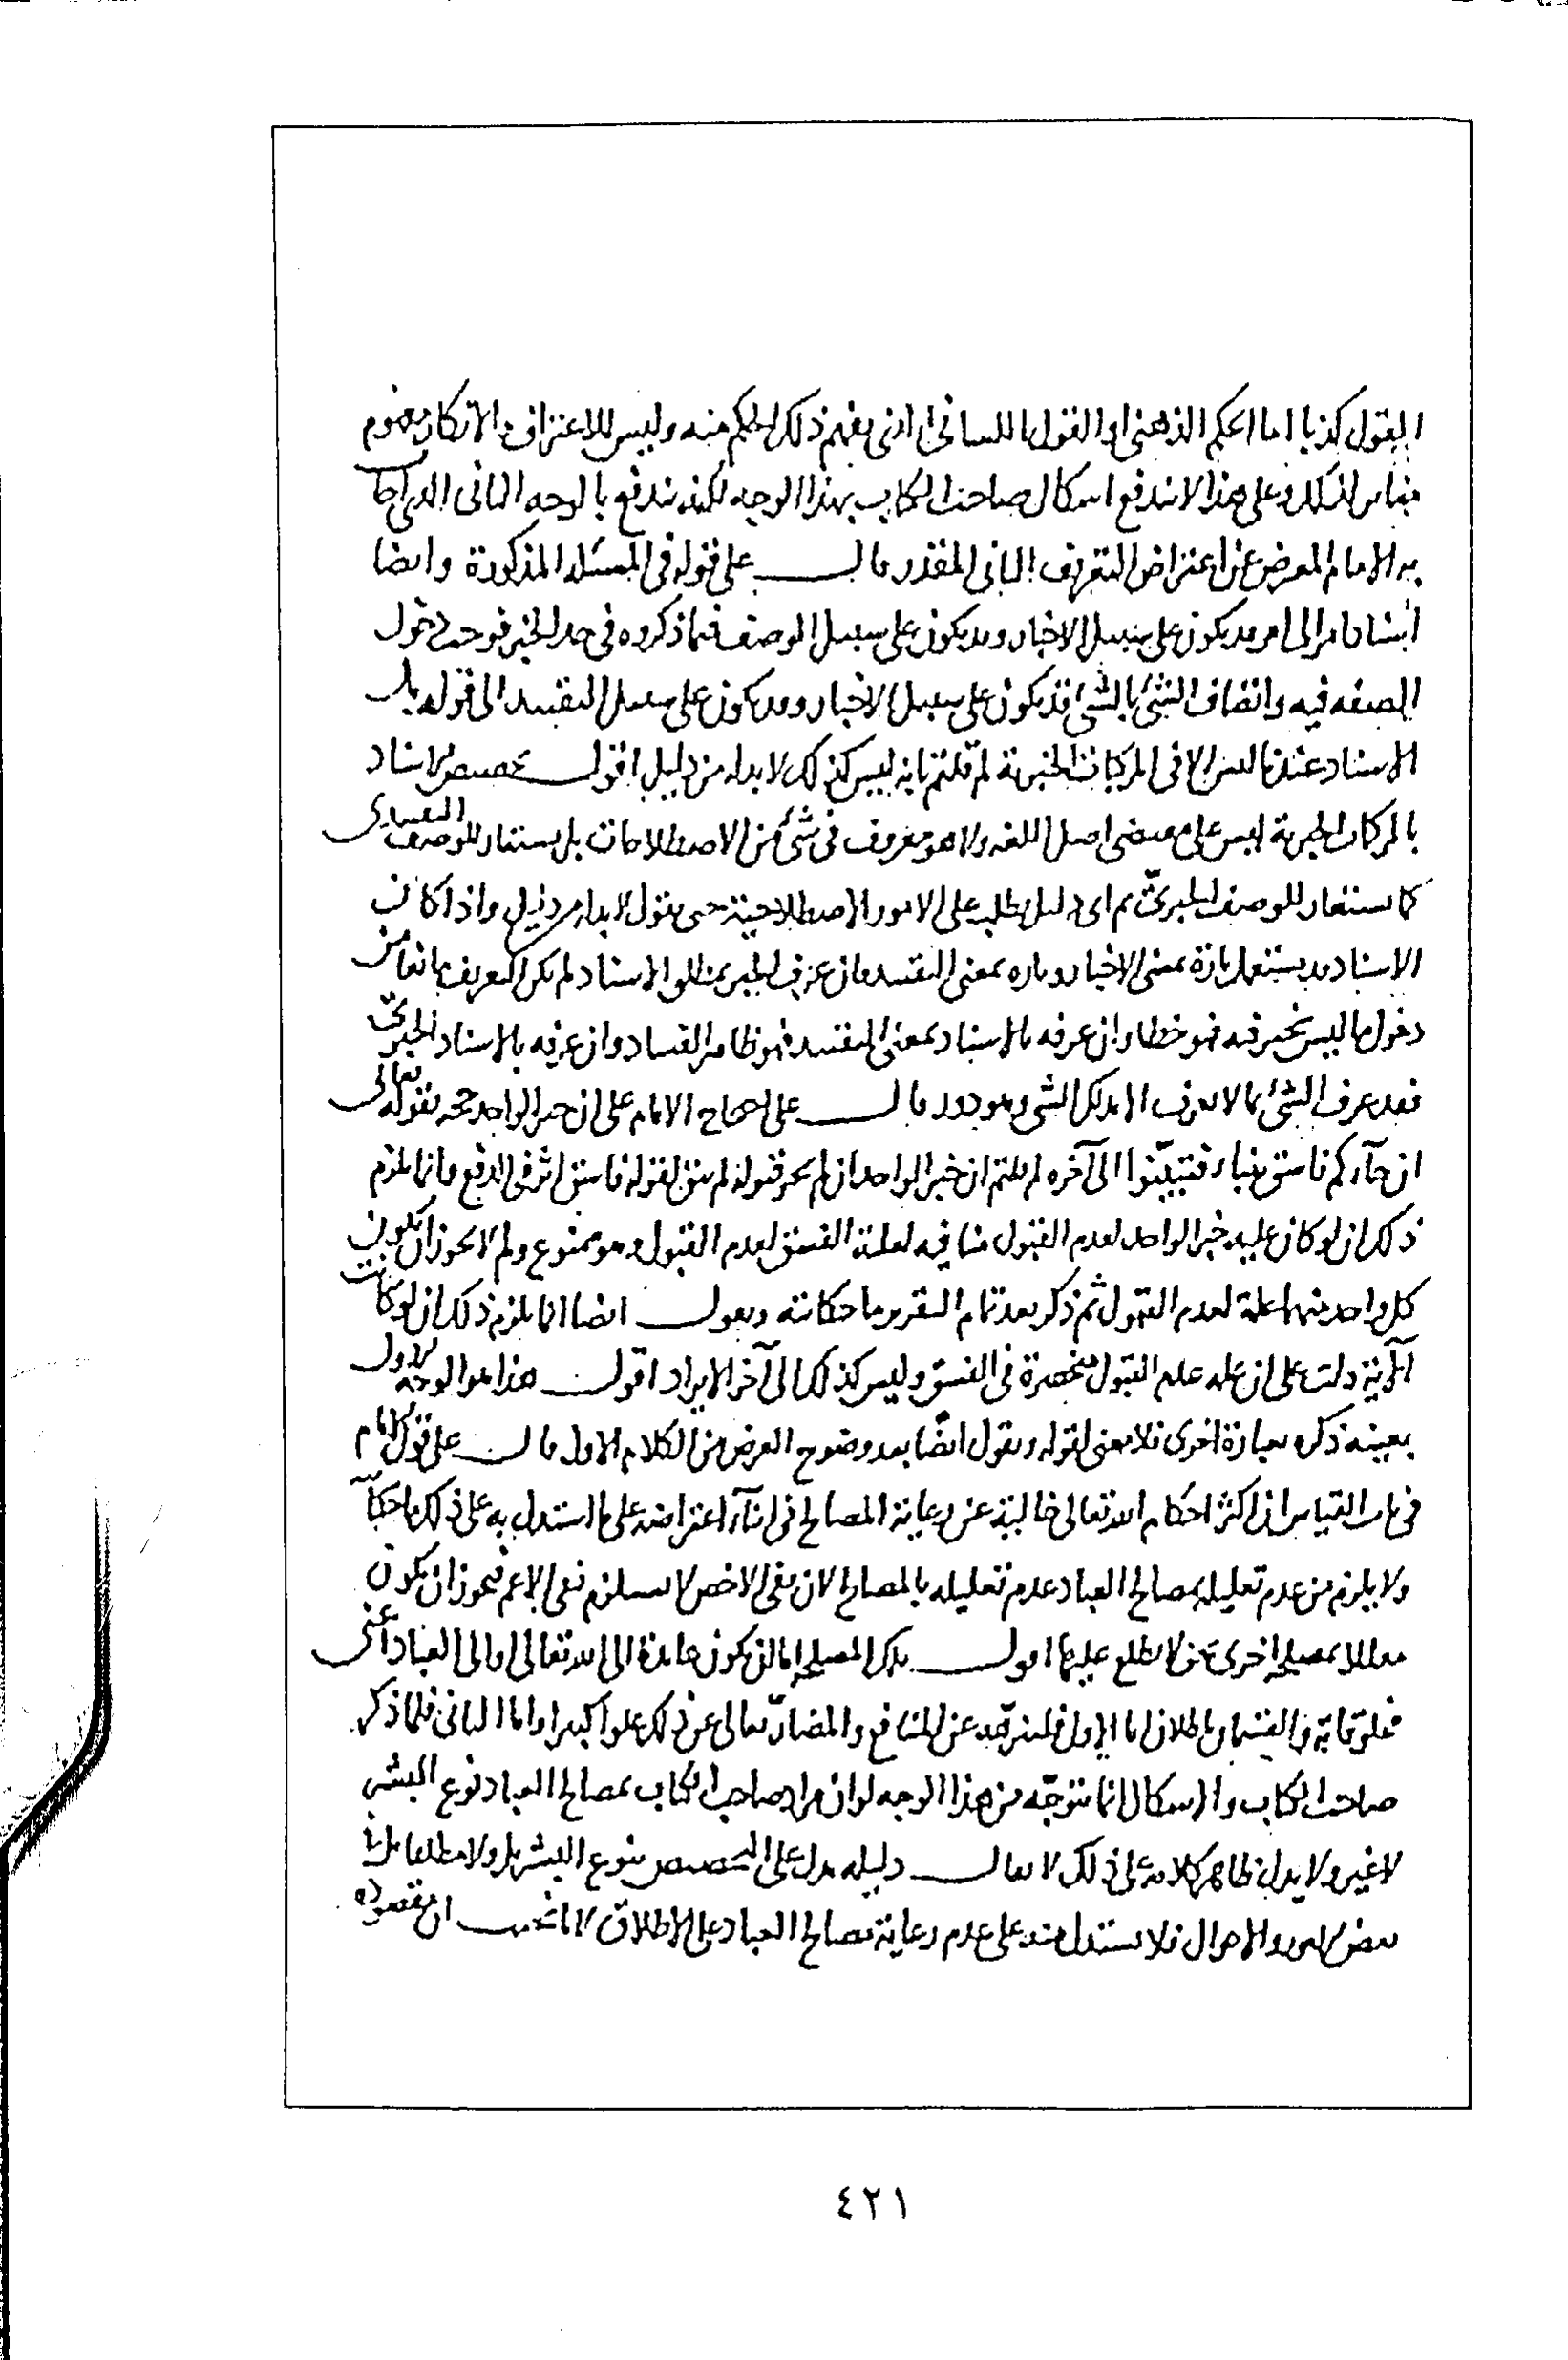 القول كذبا اما الحكم الذهني او القول اللساني اذ ادنى يفهم ذلك الحكم منه وليس للاعتراف والانكار مفهوم
لذلك وعلى هذا لا يندفع اشكال صاحب الكتاب بهذا الوجه لكنه يندفع بالوجه الثاني الذي اجاب
به الامام المعرض عن اعتراض التعريف الثاني المقدر قال على قوله في المسئلة المذكورة وايضا
اسناد امر الى امر قد يكون على سبيل الاخبار وقد يكون على سبيل الوصف فما ذكروه في حد الخبر فوجب دخول
الصفه فيه واتصاف الشيء بالشيء قد يكون على سبيل الاخبار وقد يكون على سبيل التقييد الى قوله بل
الاسناد عندنا ليس الا في المركبات الخبرية لم قلتم بانه ليس كذلك لا بد له من دليل اقول تخصيص الاسناد
بالمركبات الخبرية ليس على مقتضى اصل اللغه ولا هو معروف في شيء من الاصطلاحات بل يستعار للوصف التقييدى
كما يستعار للوصف الخبريّ ثم اى دليل يطلب على الامور الاصطلاحية حتى يقول لا بد له من دليل واذا كان
الاسناد قد يستعمل تارة بمعنى الاخبار وتاره بمعنى التقييد فان عرف الخبر بمطلق الاسناد لم يكن التعريف مانعا من
دخول ما ليس بخبر فيه فهو خطا وان عرفه بالاسناد بمعنى التقييد فهو ظاهر الفساد وان عرفه بالاسناد الخبريّ
فقد عرف الشيء بما لا يعرف الا بذلك الشي وهو دور قال على احتجاج الامام على ان خبر الواحد حجه بقوله تعالى
ان جآءكم فاسق بنباء فتبيّنوا الى آخره لم قلتم ان خبر الواحد ان لم يجز قبوله لم يبق لقوله فاسق اثر في الدفع وانما يلزم
ذلك ان لو كان علية خبر الواحد لعدم القبول منافيه لعلية الفسق لعدم القبول وهو ممنوع ولم لا يجوز ان يكون
كل واحد منهما علة لعدم القبول ثم ذكر بعد تمام التقرير ما حكايته ويقول ايضا انما يلزم ذلك ان لو كانت
الآية دلت على ان علة عدم القبول منحصرة في الفسق وليس كذلك الى آخر الايراد اقول هذا هو الوجه الاول
بعينه ذكره بعبارة اخرى فلا معنى لقوله ويقول ايضًا بعد وضوح الغرض من الكلام الاول قال على قول الامام
في باب القياس ان اكثر احكام الله تعالى خالية عن رعاية المصالح في اثنآء اعتراضه على ما استدل به على ذلك
ولا يلزم من عدم تعليله بمصالح العباد عدم تعليله بالمصالح لان نفي الاخص لا يستلزم نفي الاعم فيجوز ان يكون
معللا بمصلحة اخرى نحن لا نطلع عليها اقول تلك المصلحه اما ان يكون عائدة الى الله تعالى او الى العباد اعنى
مخلوقاته والقسمان باطلان اما الاول فلتنزّهه عن المنافع والمضارّ تعالى عن ذلك علوا كبيرا واما الثاني فلما ذكر
صاحب الكتاب والاشكال انما يتوجّه من هذا الوجه لو ان مراد صاحب الكتاب بمصالح العباد نوع البشر
لا غير ولا يدل ظاهر كلامه على ذلك لا يقال دليله يدل على التخصيص بنوع البشر بل ولا مطلقا بل في
بعض الامور والاحوال فلا يستدل منه على عدم رعاية مصالح العباد على الاطلاق لانا نجيب ان مقصوده
٤٢١